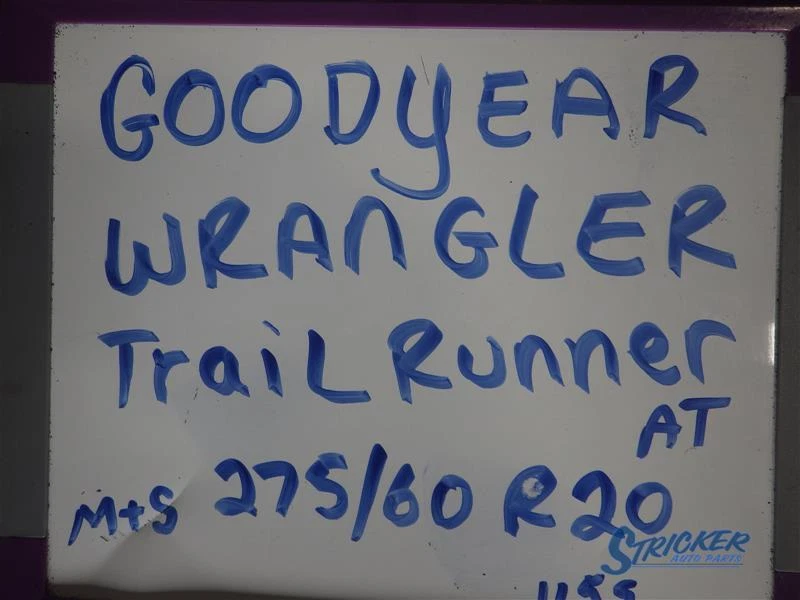 GOODYEAR
WRANGLER
TraiL Runner
AT
M+S 275/60 R20
STRICKER
AUTO PARTS